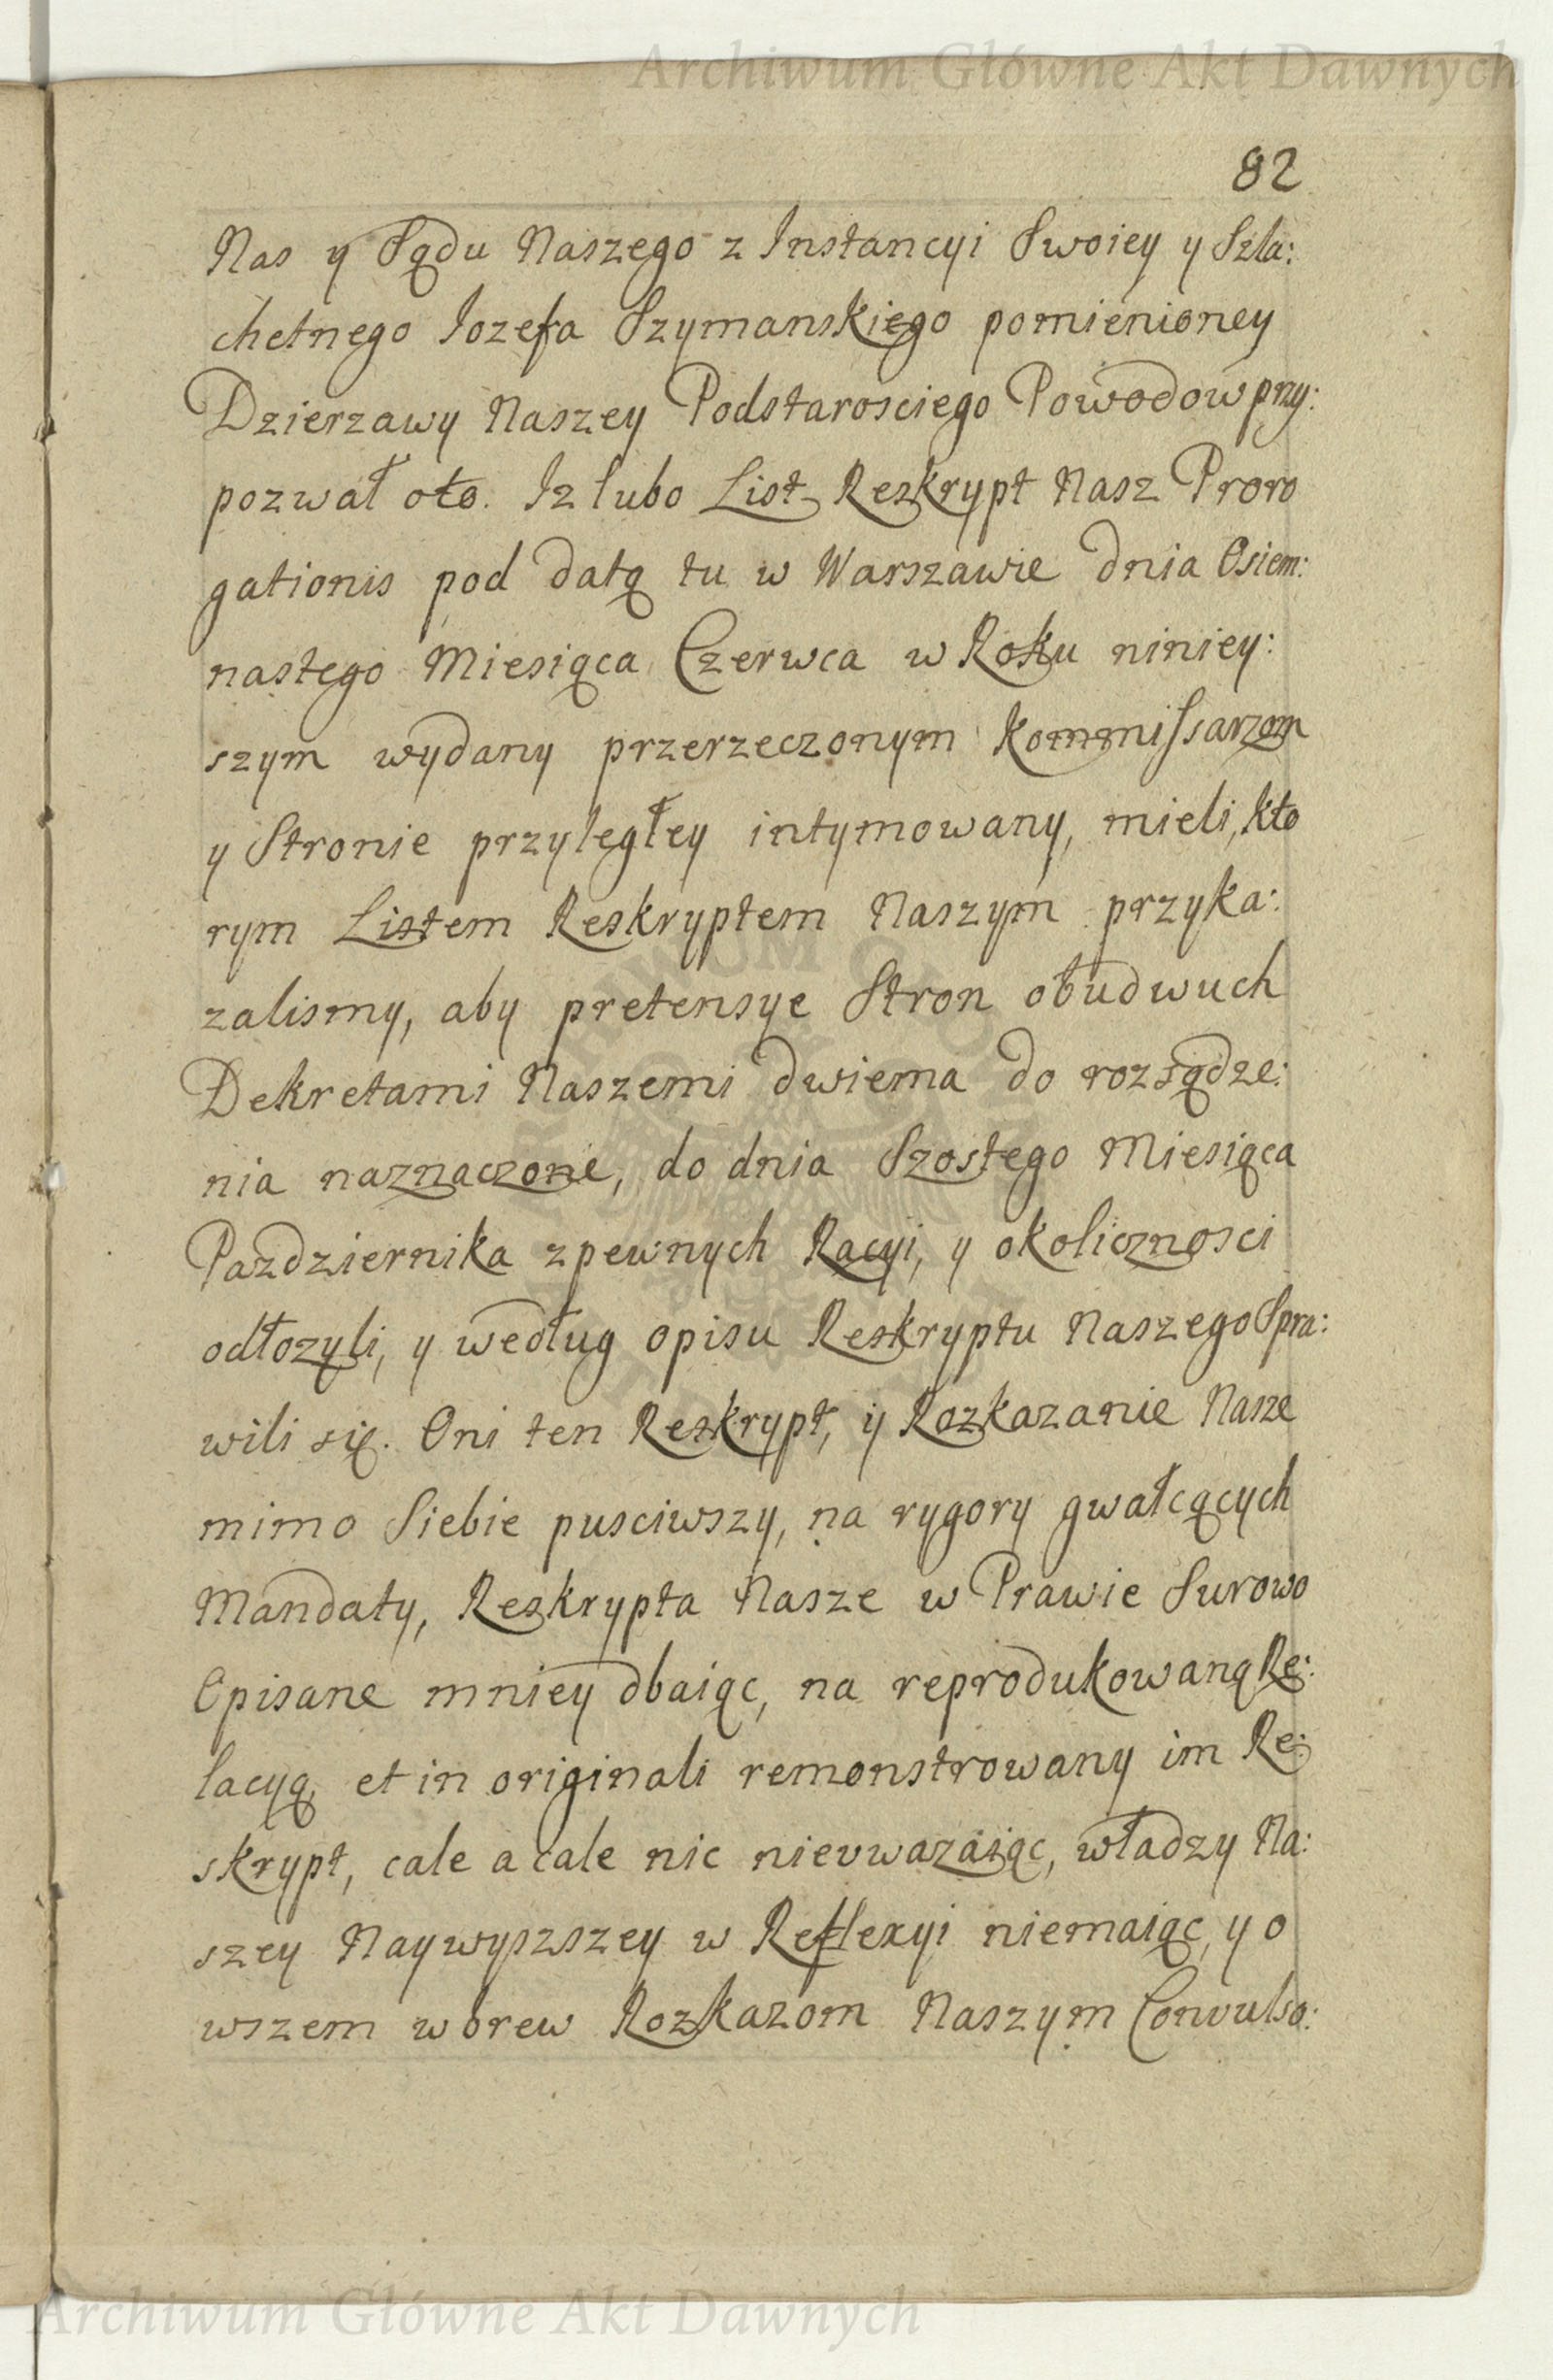 Archiwum Główne Akt Dawnych
82
Nas y Sądu Naszego z Instancyi Swoiey y Szla:
chetnego Iozefa Szymanskiego pomienioney
Dzierzawy Naszey Podstarosciego Powodow przy:
pozwał oto. Iz lubo List Reskrypt Nasz Proro
gationis pod datą tu w Warszawie dnia Osiem:
nastego Miesiąca Czerwca w Roku niniey:
szym wydany przerzeczonym Kommissarzom
y Stronie przyległey intymowany, mieli, kto
rym Listem Reskryptem Naszym przyka:
zalismy, aby pretensye Stron obudwuch
Dekretami Naszemi dwiema do rozsądze:
nia naznaczone, do dnia Szostego Miesiąca
Pazdziernika z pewnych Racyi, y okolicznosci
odłozyli, y według opisu Reskryptu Naszego Spra:
wili się. Oni ten Reskrypt, y Rozkazanie Nasze
mimo Siebie pusciwszy, na rygory gwałcących
Mandaty, Reskrypta Nasze w Prawie Surowo
Opisane mniey dbaiąc, na reprodukowaną Re:
lacyą, et in originali remonstrowany im Re:
skrypt, cale a cale nic nieuwazaiąc, władzy Na:
szey Naywyszszey w Reflexyi niemaiąc, y o
wszem wbrew Rozkazom Naszym Convulso:
Archiwum Główne Akt Dawnych